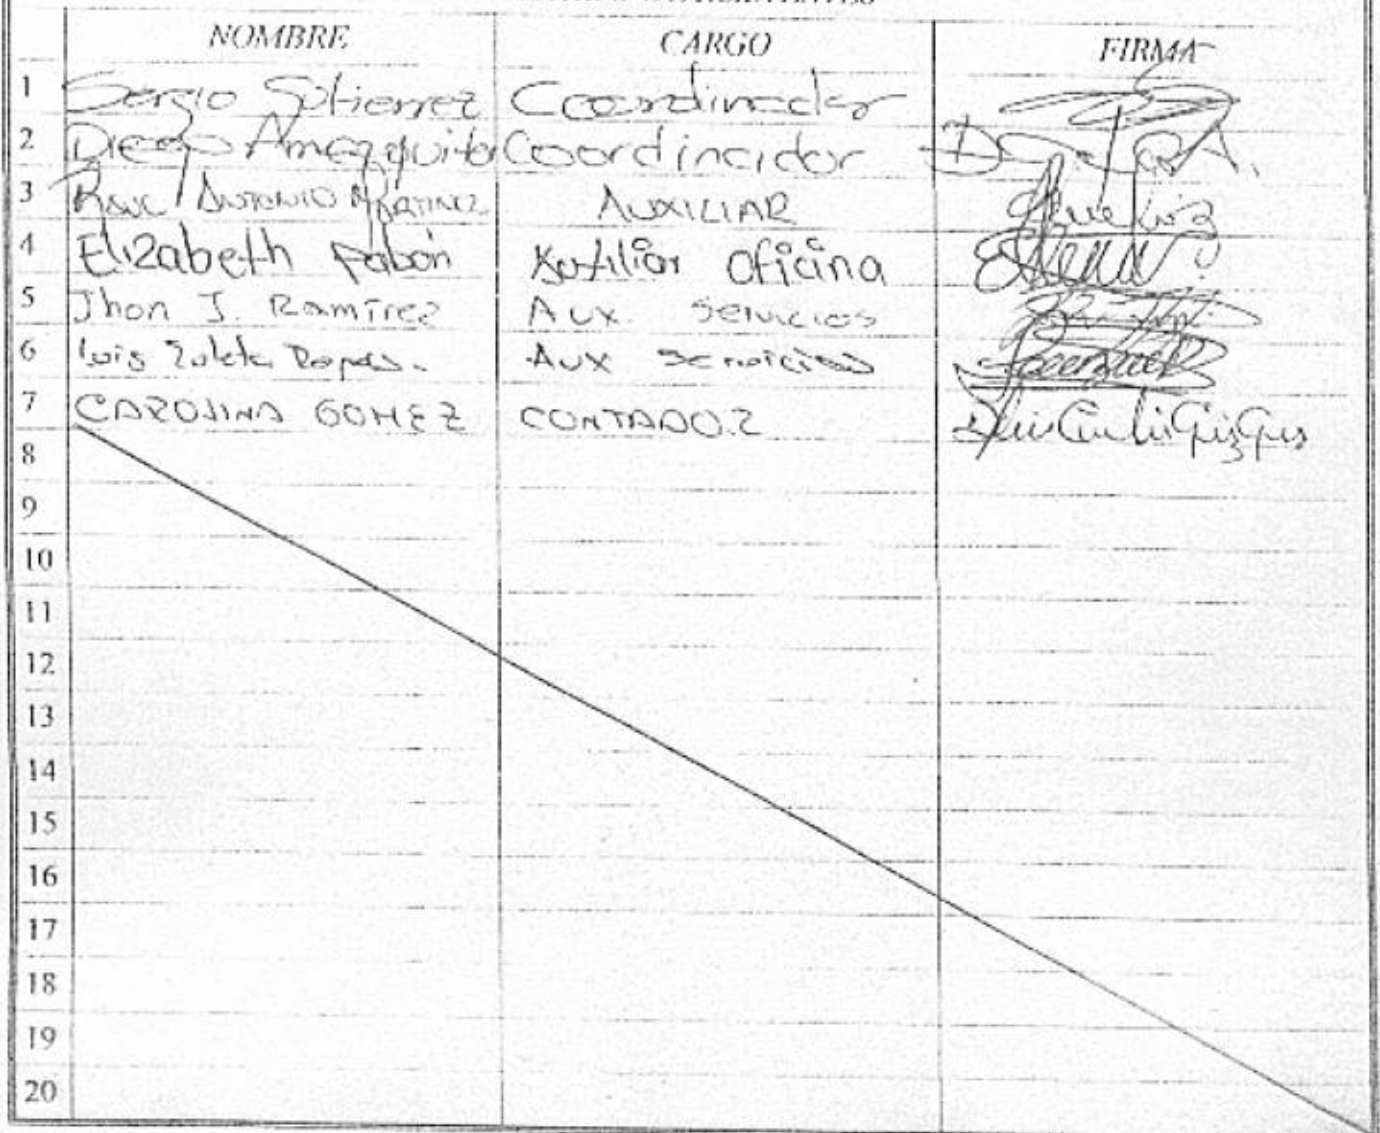 NOMBRE CARGO FIRMA
1 Sergio Gutierrez Coordinador
2 Diego Amezquita Coordinador
3 ANTONIO MARTINEZ AUXILIAR
4 Elizabeth Pabón Auxiliar Oficina
5 Jhon J. Ramírez Aux. Servicios
6 Luis Zuleta Aux Servicios
7 CAROLINA GOMEZ CONTADOR
8
9
10
11
12
13
14
15
16
17
18
19
20